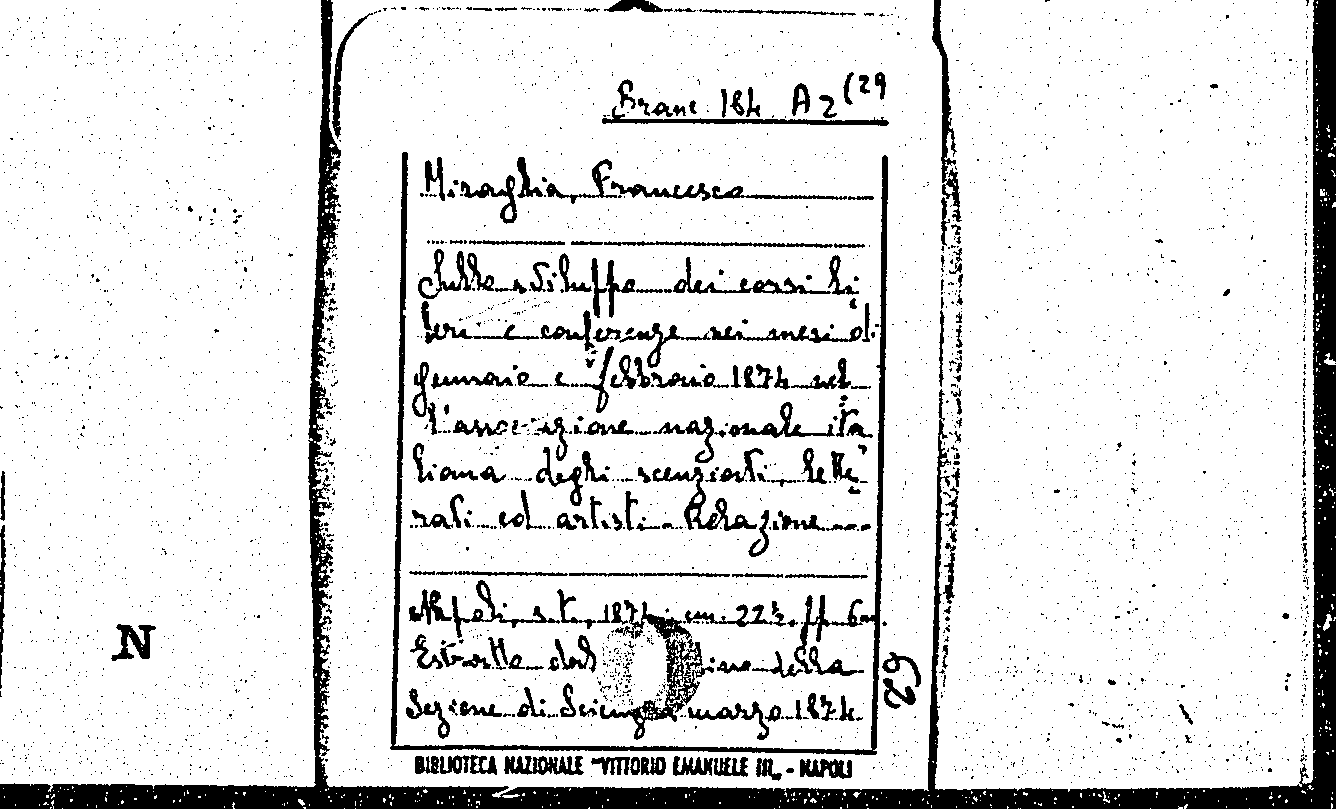 Branc 184 A2(29
Miraglia, Francesco
Sullo sviluppo dei corsi li
beri e conferenze nei mesi di
gennaio e febbraio 1874 nel
l'associazione nazionale ita
liana degli scenziati, lette
rati ed artisti. Relazione ---
Napoli, s.t., 1874. cm. 22½. pp. 6
Estratto dal della
Sezione di Scienze marzo 1874
BIBLIOTECA NAZIONALE "VITTORIO EMANUELE III„ - NAPOLI
N
62